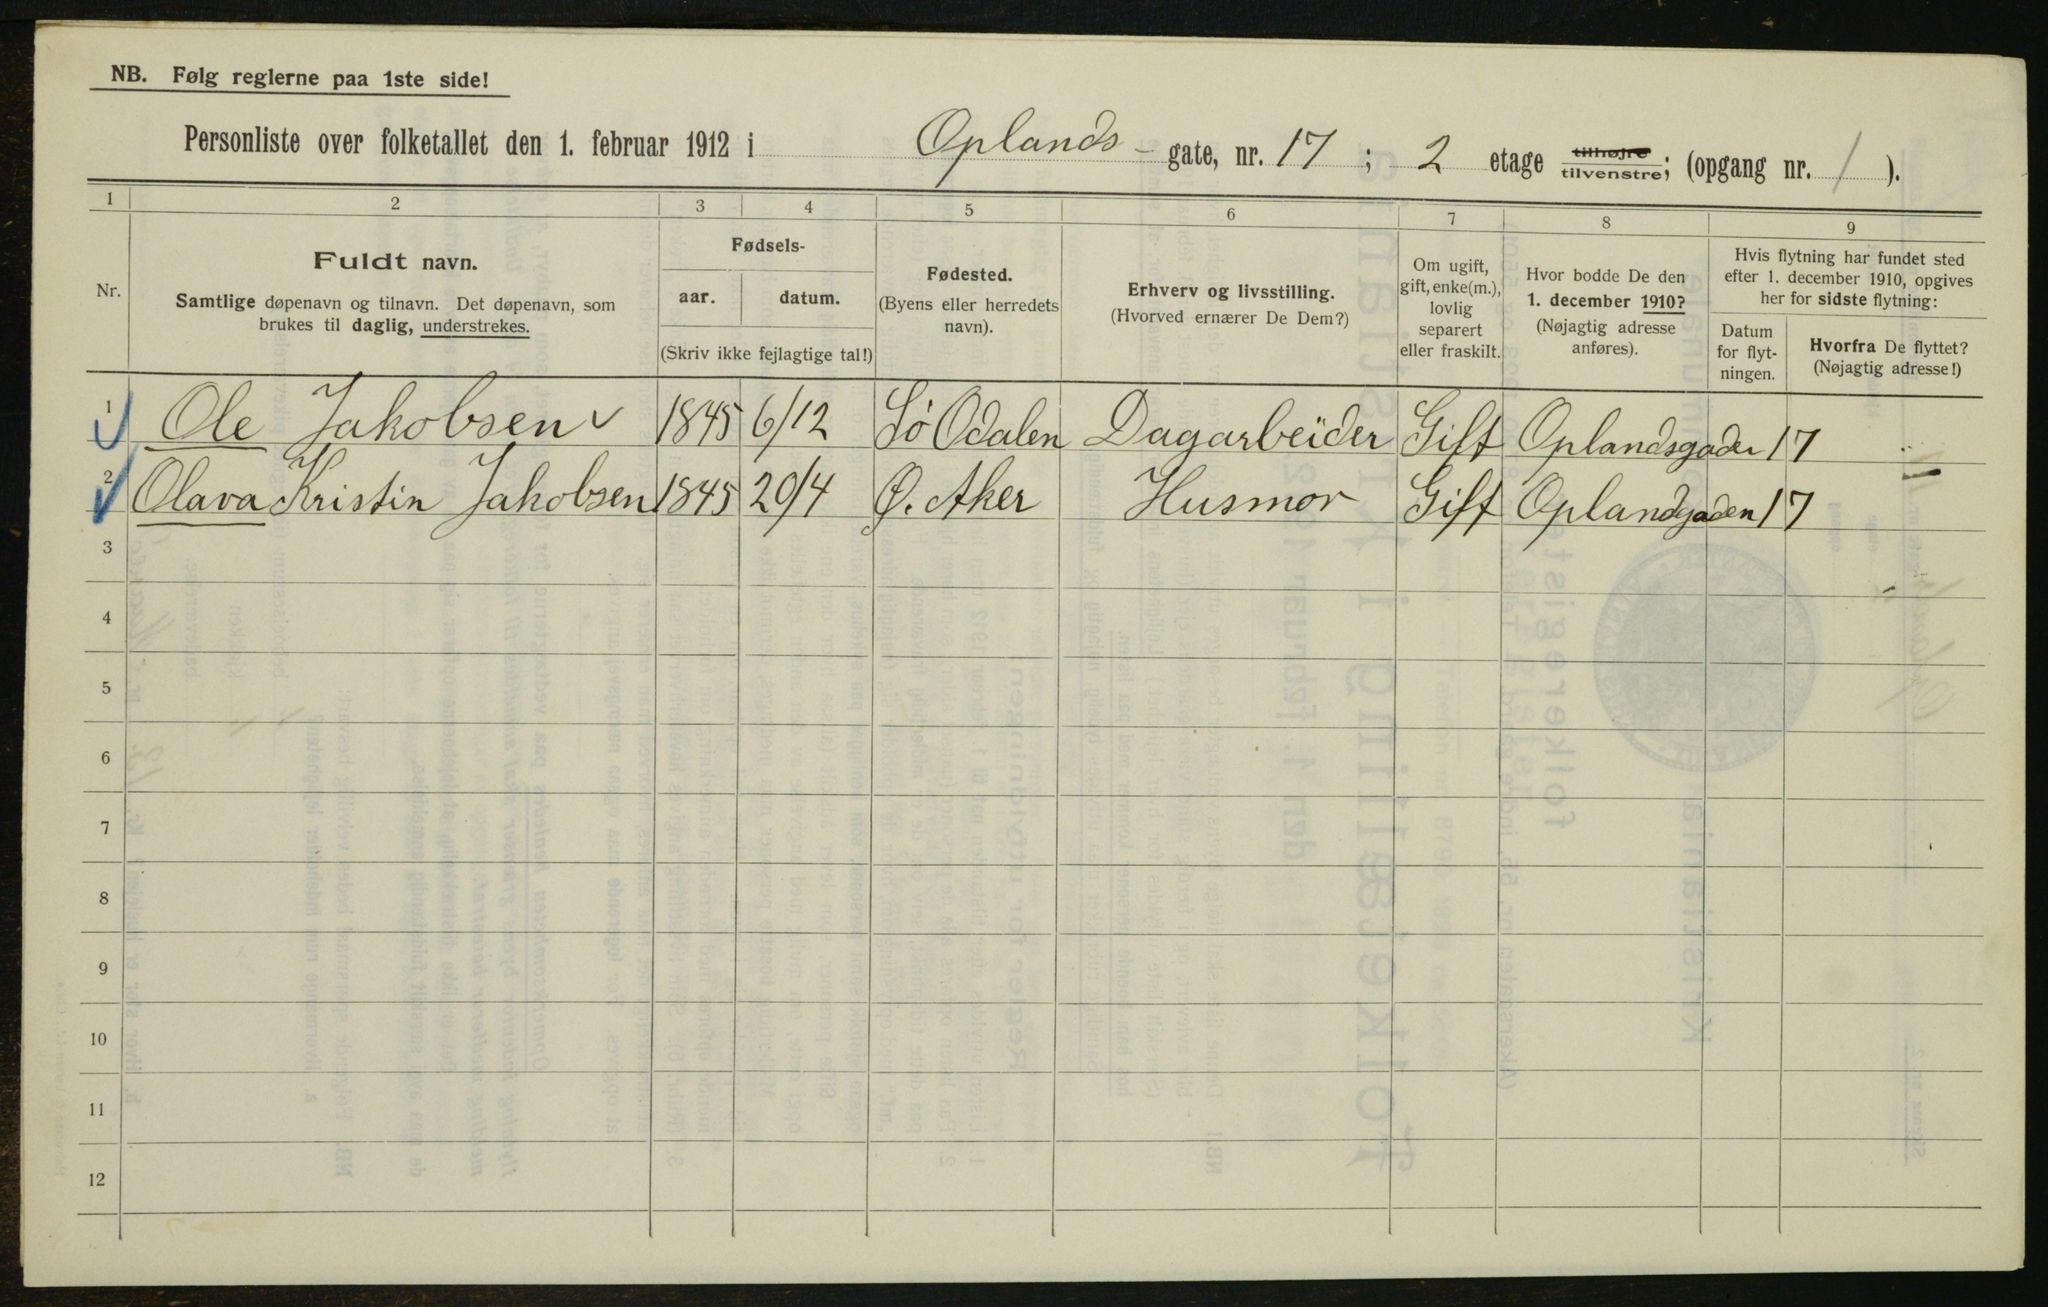 NB. Følg reglerne paa 1ste side!
Personliste over folketallet den 1. februar 1912 i Oplands- gate, nr. 17; 2 etage tilhøjre tilvenstre; (opgang nr. 1).
1 2 3 4 5 6 7 8 9
Nr.
Fuldt navn.
Samtlige døpenavn og tilnavn. Det døpenavn, som
brukes til daglig, understrekes.
Fødsels-
aar. datum.
(Skriv ikke fejlagtige tal!)
Fødested.
(Byens eller herredets
navn).
Erhverv og livsstilling.
(Hvorved ernærer De Dem?)
Om ugift,
gift, enke(m.),
lovlig
separert
eller fraskilt.
Hvor bodde De den
1. december 1910?
(Nøjagtig adresse
anføres).
Hvis flytning har fundet sted
efter 1. december 1910, opgives
her for sidste flytning:
Datum
for flyt-
ningen.
Hvorfra De flyttet?
(Nøjagtig adresse!)
1 Ole Jakobsen 1845 6/12 Sø Odalen Dagarbeider Gift Oplandsgaden 17
2 Olava Kristin Jakobsen 1845 20/4 Ø. Aker Husmor Gift Oplandgaden 17
3
4
5
6
7
8
9
10
11
12